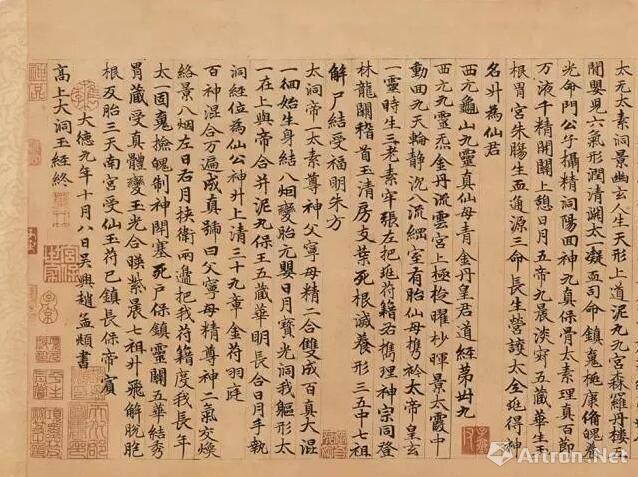 太元太素洞景幽人生天形上道泥九九宮森羅丹樓云
閒嬰見六氣形潤清淵太一凝而司命鎮嵬梃康脩魄養
光命門公子攝精洞陽回神九真保骨太素理真百節
万液千精開關上憩日月五帝九晨渙五藏華生玉
根胃宮朱腸生五通源三命長生營護太全埏得神
名升為仙君
西元龜山九靈真仙母青金丹皇君道經第卅九
西元九靈金丹流雲宮上極控曜杪暉景太霞中
動回九天輪靜沉八流綱室有胎仙母攜衿太帝皇玄
一靈時生三老素牢張左把埏符籍右攜理神宗同登
林龍關稽首玉清房支葉死根滅養形三五中七祖
解尸結受福明朱方
太洞帝一太素尊神父寧母精二合雙成百真大混
一徊始生身結八烟變胎元嬰日月寶光洞我軀形太
一在上與帝合并泥九保王五藏華明長合日月手執
洞經位為仙公神升上清三十九章金符羽庭
百神混合万遍成真號曰父寧母精尊神二氣交煥
絡景八烟左日右月挾衛兩邊把我符籍度我長年
太一固魂撿魄制神閉塞死戶保鎮靈關五華結秀
胃藏受真體變玉光合暎紫晨七祖升飛解脫胞
根反胎三天南宮受仙玉符已鎮長保帝賓
高上大洞玉經終
大德九年十月八日吳興趙孟頫書
Artron.Net